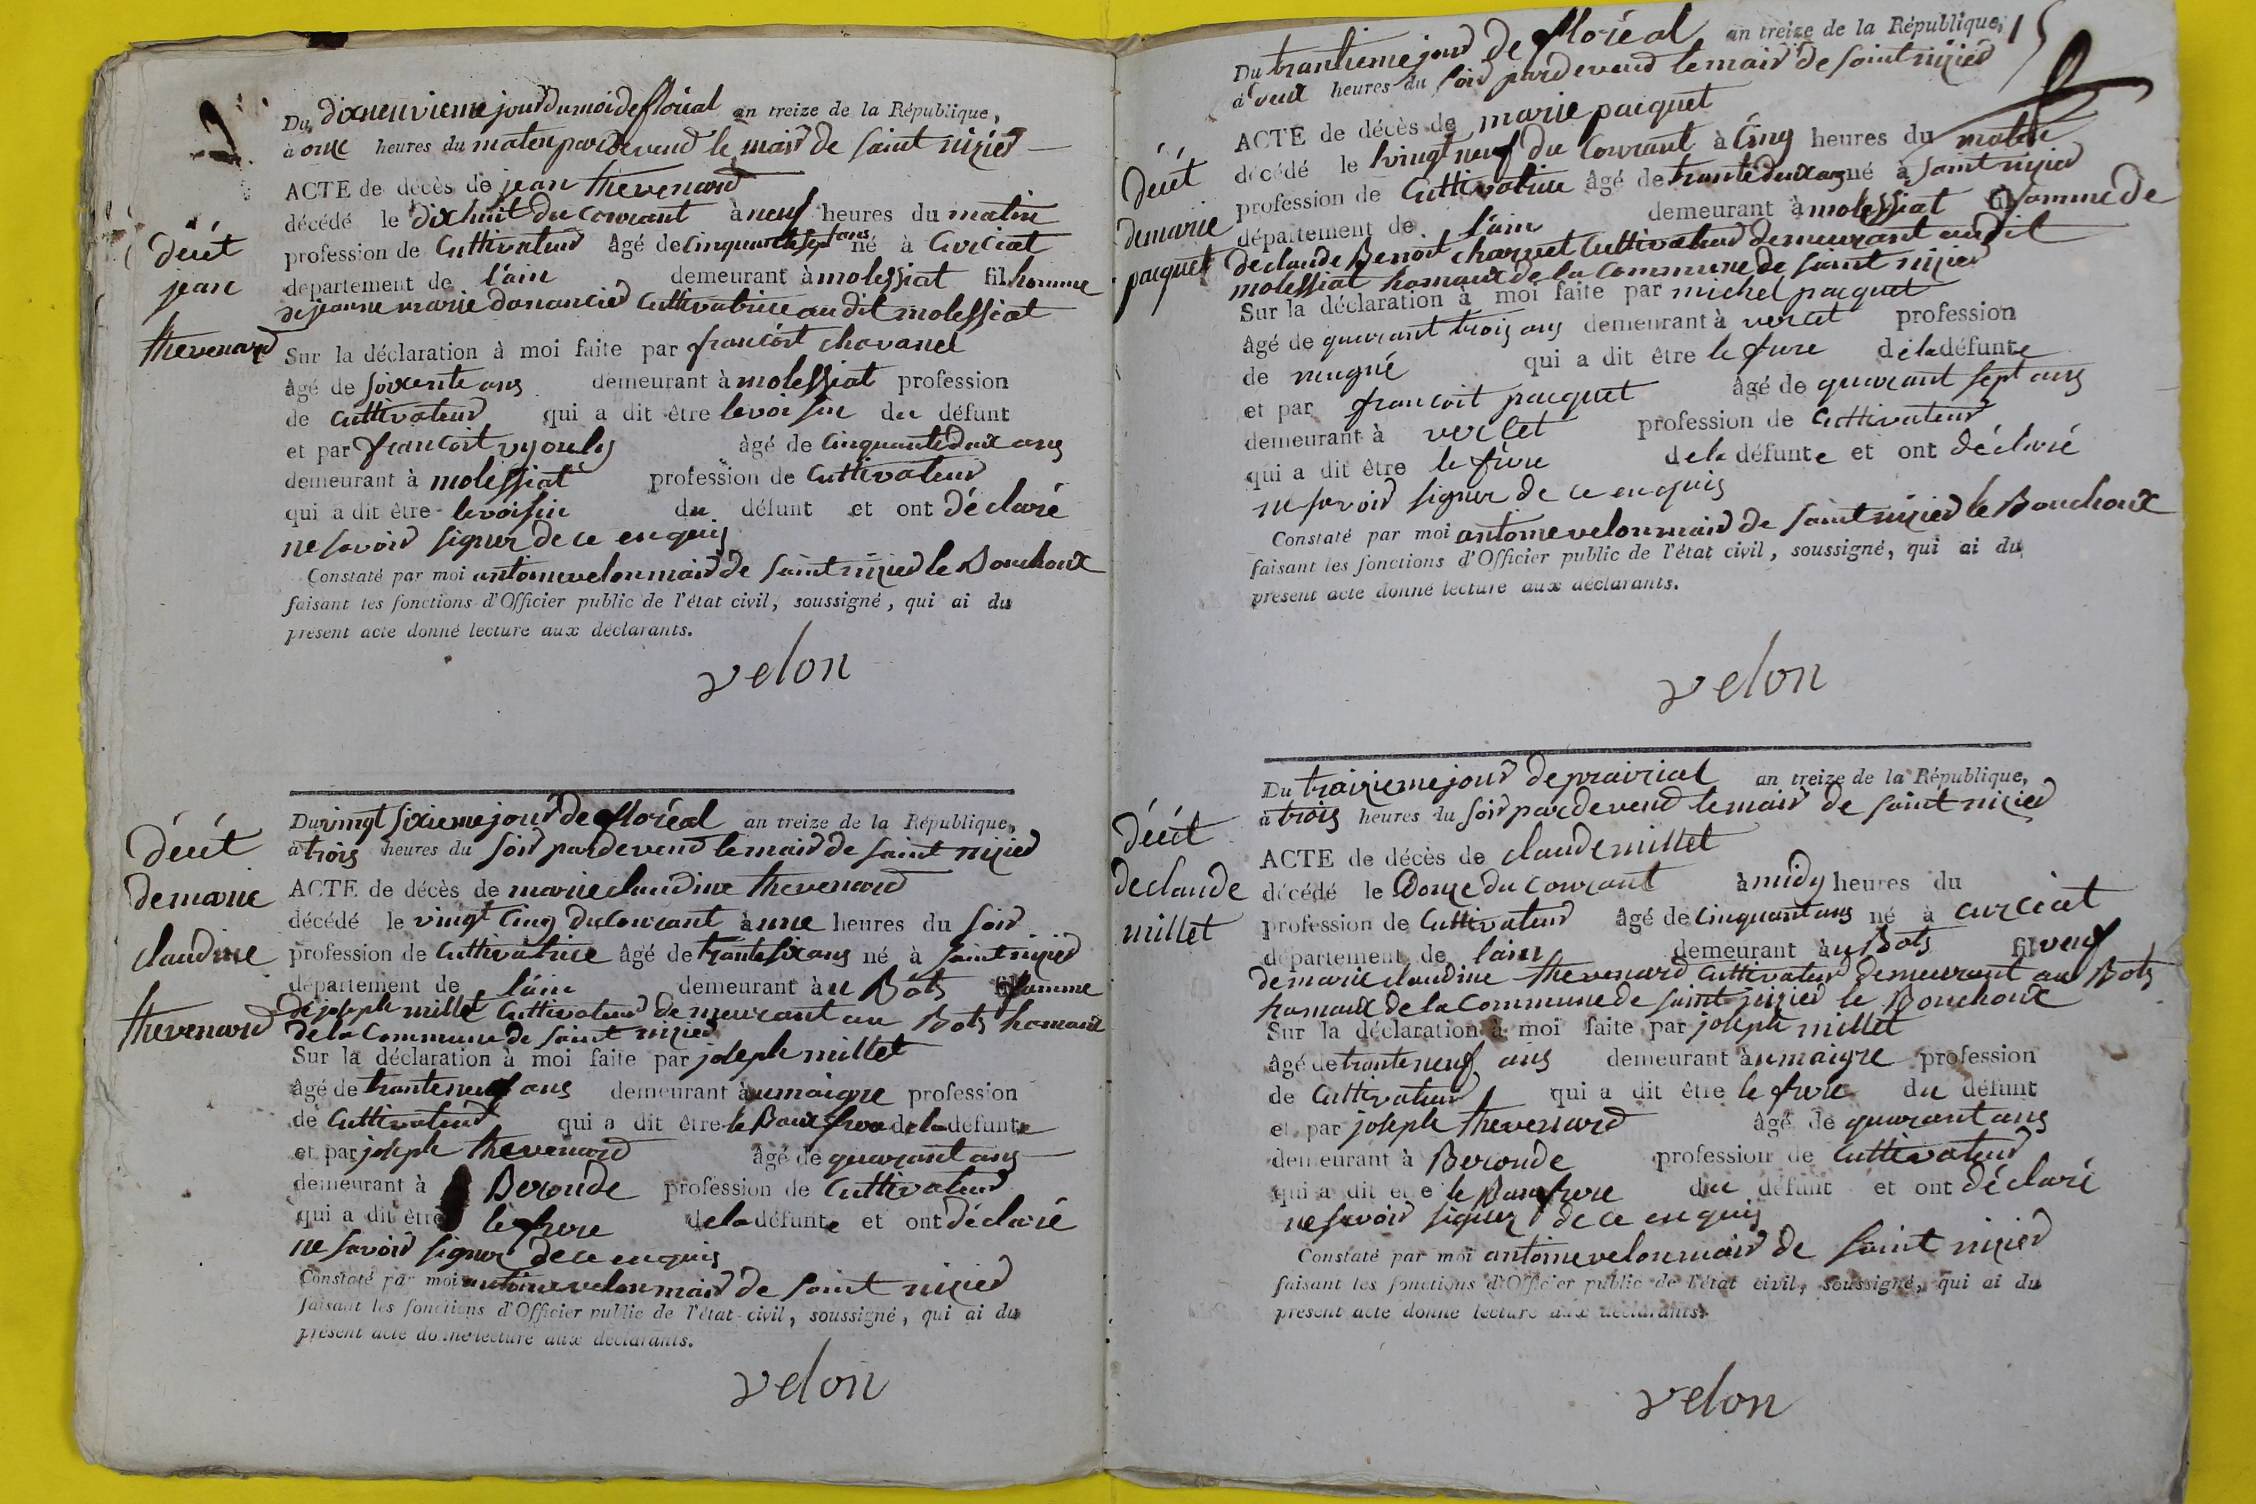 Du dixneuvieme jour du moi de floréal an treize de la République,
à onze heures du maten pardevend le maire de saint nizier
ACTE de décès de jean thevenard
décédé le dix huit du courant à neuf heures du matin
profession de Cultivateur âgé de cinquante sept ans né à Curciat
département de l'ain demeurant à molessiat fil homme
de jeanne marie donancier Cultivatrice audit molessiat
Sur la déclaration à moi faite par francoit chavanel
âgé de soixente ans demeurant à molessiat profession
de Cultivateur qui a dit être le voisin du défunt
et par francoit vyouly âgé de cinquante deux ans
demeurant à molessiat profession de Cultivateur
qui a dit être le voisin du défunt et ont déclaré
ne savoir signer de ce enquis
Constaté par moi antoine velon maire de saint nizier le Bouchoux
faisant les fonctions d'Officier public de l'état civil, soussigné, qui ai du
présent acte donné lecture aux déclarants.
velon
décét
jean
thevenard
Du vingt sixieme jour de floréal an treize de la République,
à trois heures du soir pardevend le maire de saint nizier
ACTE de décès de marie claudine thevenard
décédé le vingt cinq du courant à une heures du soir
profession de Cultivatrice âgé de trante six ans né à saint nizier
département de l'ain demeurant au Bots famme
de joseph millet Cultivateur demeurant au Bots hamaux
de la commune de saint nizier
Sur la déclaration à moi faite par joseph millet
âgé de trante neuf ans demeurant au maigre profession
de Cultivateur qui a dit être le Baux frere de la défunte
et par joseph thevenard âgé de quarant ans
demeurant à Beronde profession de Cultivateur
qui a dit être le frere de la défunte et ont déclaré
ne savoir signer de ce enquis
Constaté par moi antoine velon maire de saint nizier
faisant les fonctions d'Officier public de l'état civil, soussigné, qui ai du
présent acte donné lecture aux déclarants.
velon
décét
de marie
claudine
thevenard
15
Du trantieme jour de floréal an treize de la République,
à heures du soir pardevend le maire de saint nizier
ACTE de décès de marie pacquet
décédé le vingt neuf du courant à cinq heures du matin
profession de Cultivatrice âgé de trante deux ans né à saint nizier
département de l'ain demeurant à molessiat famme de
de claude Benoit charvet Cultivateur demeurant audit
molessiat hamaux de la commune de saint nizier
Sur la déclaration à moi faite par michel pacquet
âgé de quarant trois ans demeurant à vercet profession
de mugné qui a dit être le frere de la défunte
et par francoit pacquet âgé de quarant sept ans
demeurant à vercet profession de Cultivateur
qui a dit être le frere de la défunte et ont déclaré
ne savoir signer de ce enquis
Constaté par moi antoine velon maire de saint nizier le Bouchoux
faisant les fonctions d'Officier public de l'état civil, soussigné, qui ai du
présent acte donné lecture aux déclarants.
velon
décét
de marie
pacquet
Du traizieme jour de prairial an treize de la République,
à trois heures du soir pardevend le maire de saint nizier
ACTE de décès de claude millet
décédé le Douze du courant à midy heures du
profession de Cultivateur âgé de cinquant ans né à curciat
département de l'ain demeurant au Bots fil veuf
de marie claudine thevenard Cultivateur demeurant au Bots
hamaux de la commune de saint nizier le Bouchoux
Sur la déclaration à moi faite par joseph millet
âgé de trante neuf ans demeurant au maigre profession
de Cultivateur qui a dit être le frere du défunt
et par joseph thevenard âgé de quarant ans
demeurant à Beronde profession de Cultivateur
qui a dit etre le Bau frere du défunt et ont déclaré
ne savoir signer de ce enquis
Constaté par moi antoine velon maire de saint nizier
faisant les fonctions d'Officier public de l'état civil, soussigné, qui ai du
présent acte donné lecture aux déclarants.
velon
décét
de claude
millet